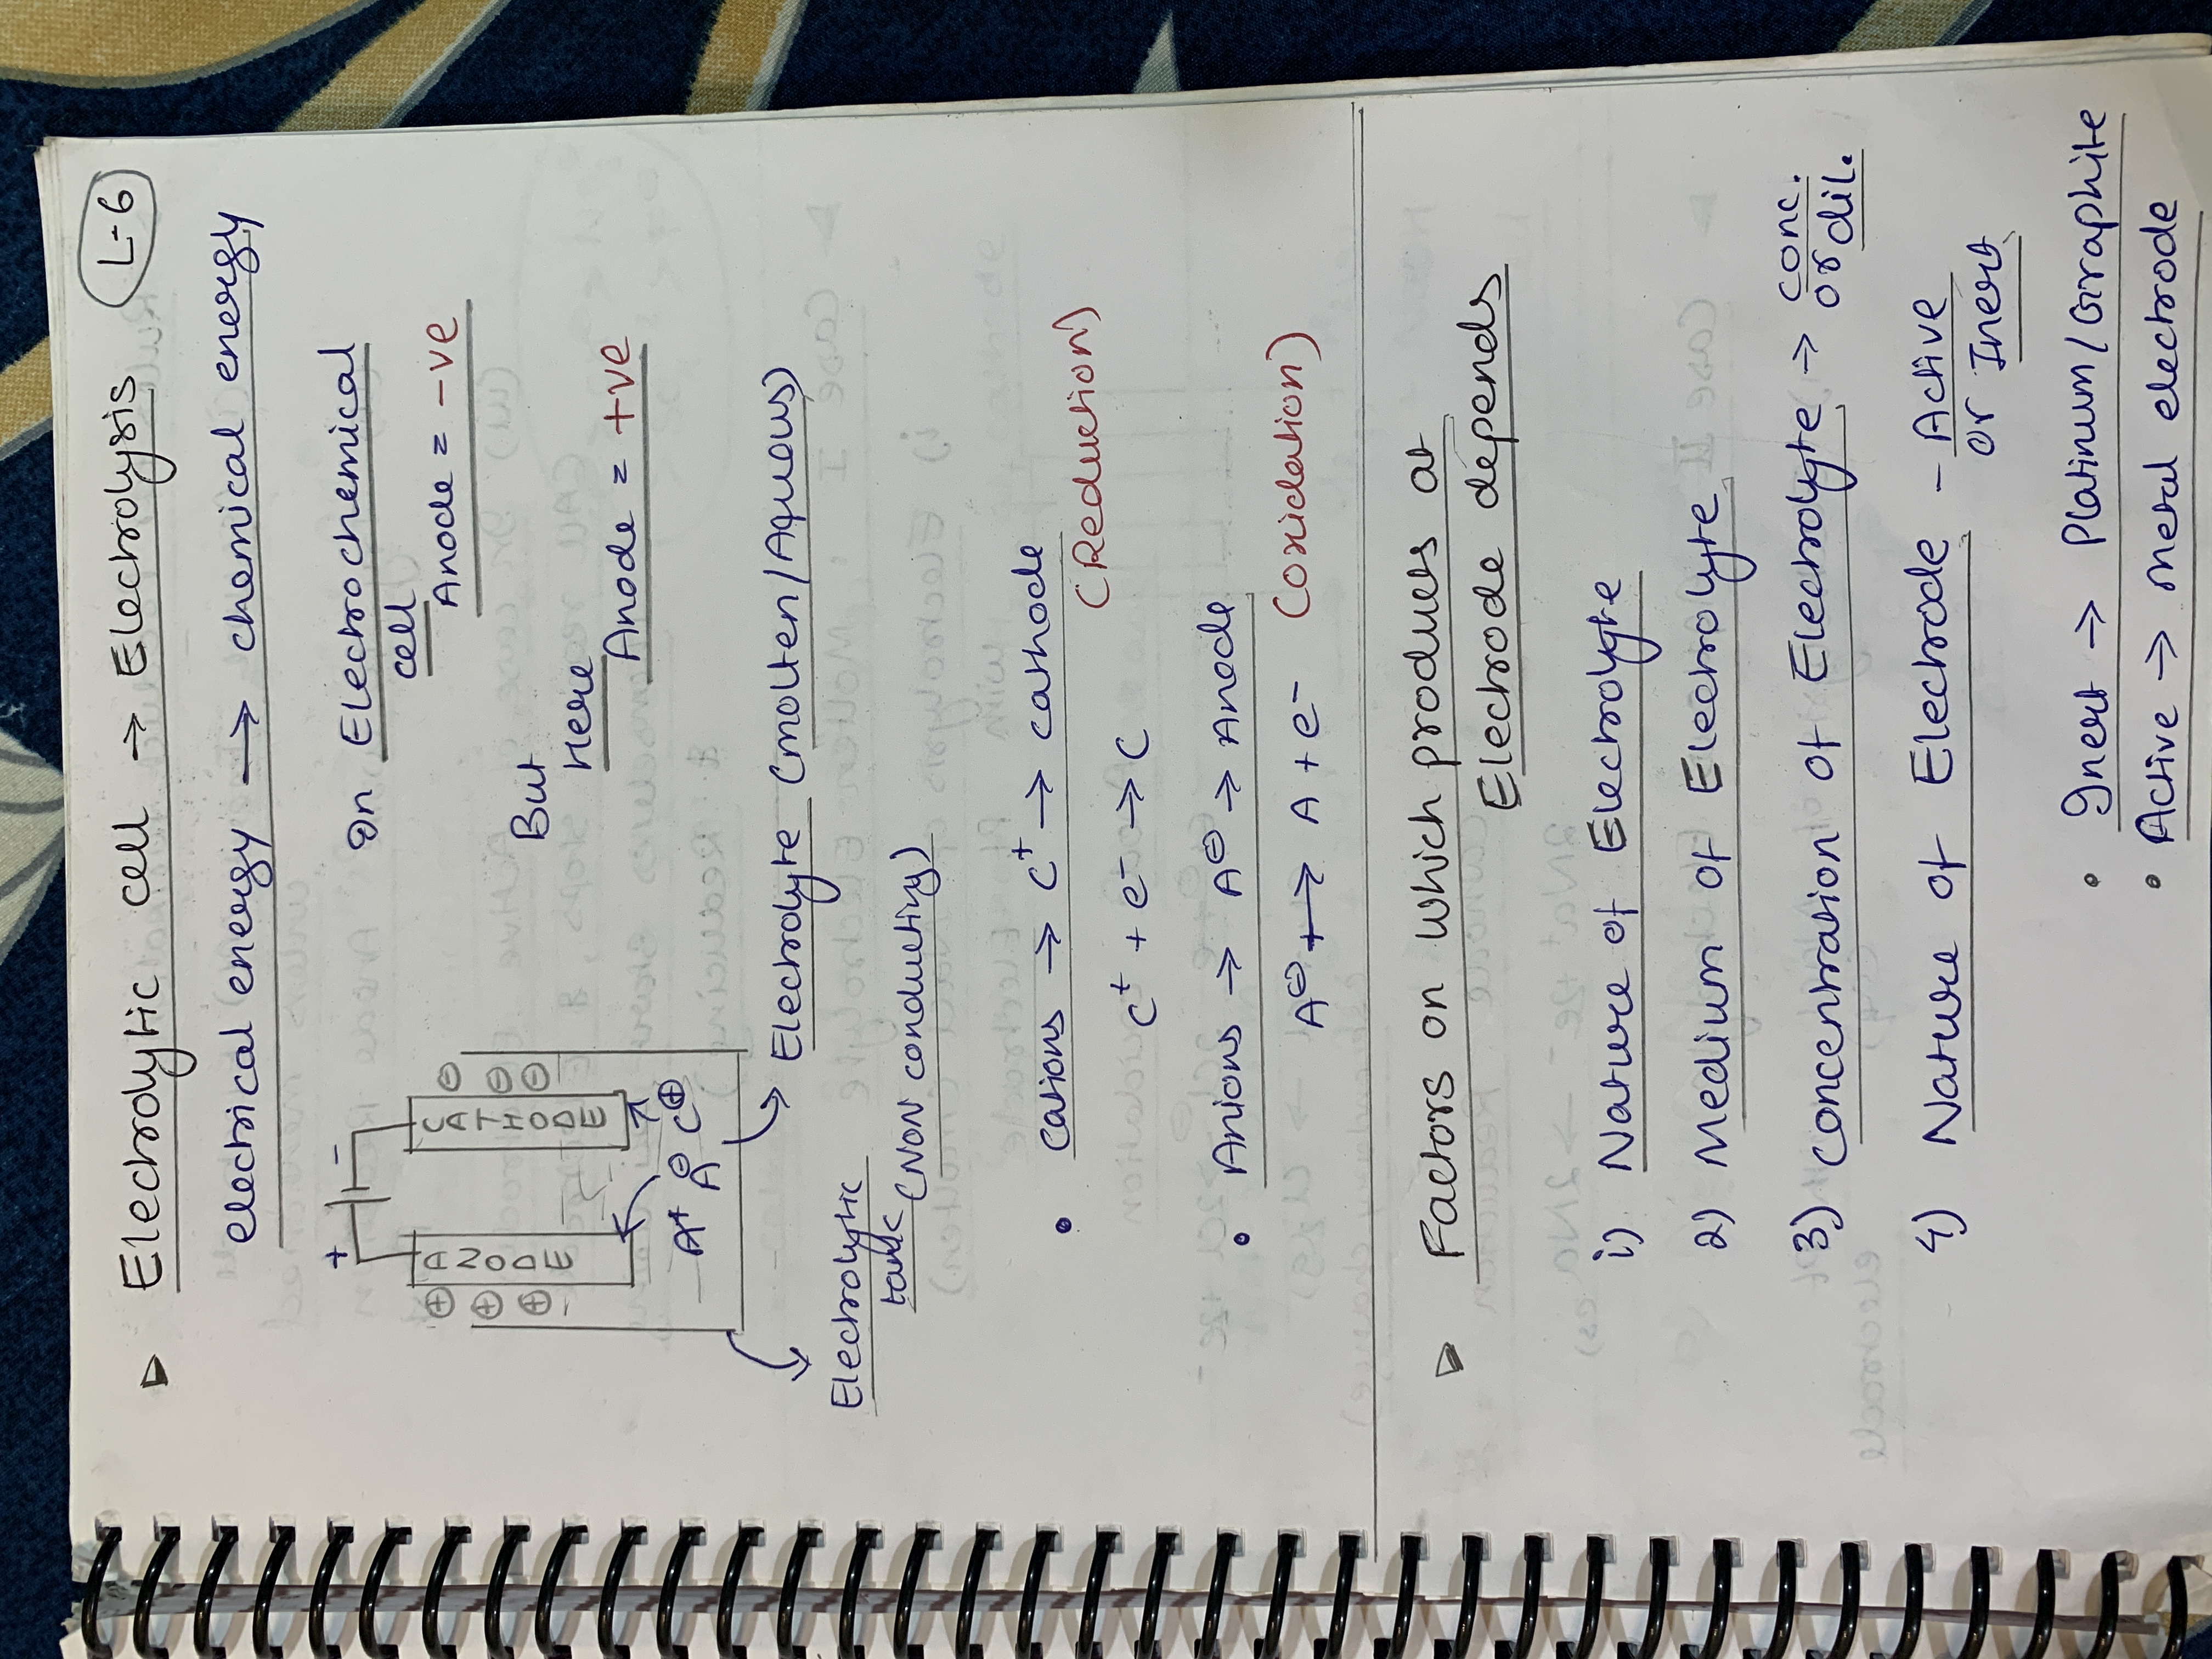 ▷ Electrolytic cell → Electrolysis
L-6
electrical energy → chemical energy
+ -
In Electrochemical
cell
Anode = -ve
But
Here
Anode = +ve
⊕ ANODE CATHODE ⊖
⊕ ⊖
⊕ ⊖
A⁺ A⊖ C⊕
Electrolyte (molten/Aqueous)
Electrolytic
tank (NON conducting)
• cations → C⁺ → cathode
(Reduction)
C⁺ + e⁻ → C
• Anions → A⊖ → Anode
A⊖ → A + e⁻ (oxidation)
▷ Factors on which products at
Electrode depends
i) Nature of Electrolyte
2) Medium of Electrolyte
3) concentration of Electrolyte → conc.
or dil.
4) Nature of Electrode - Active
or Inert
• Inert → Platinum/Graphite
• Active → Metal electrode